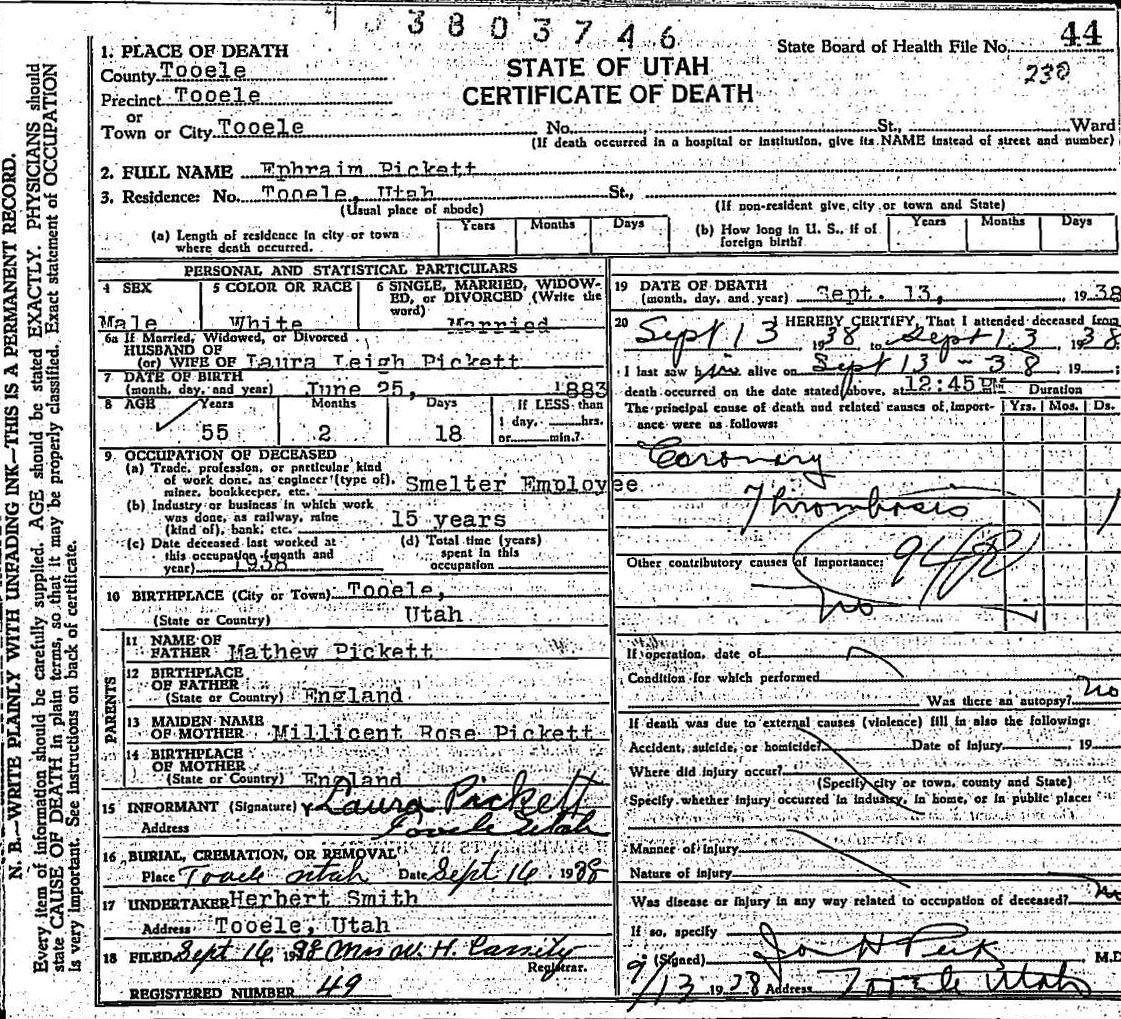 3803746
State Board of Health File No. 44
230
1. PLACE OF DEATH
County Tooele
Precinct Tooele
or
Town or City Tooele No. St., Ward
STATE OF UTAH
CERTIFICATE OF DEATH
(If death occurred in a hospital or institution, give its NAME instead of street and number)
2. FULL NAME Ephraim Pickett
3. Residence: No. Tooele, Utah St.,
(Usual place of abode) (If non-resident give city or town and State)
(a) Length of residence in city or town where death occurred. Years Months Days
(b) How long in U. S., if of foreign birth? Years Months Days
PERSONAL AND STATISTICAL PARTICULARS
4 SEX 5 COLOR OR RACE 6 SINGLE, MARRIED, WIDOW-
ED, or DIVORCED (Write the
word)
Male White Married
6a If Married, Widowed, or Divorced
HUSBAND OF
(or) WIFE OF Laura Leigh Pickett
7 DATE OF BIRTH
(month, day, and year) June 25, 1883
8 AGE Years Months Days If LESS than
1 day, hrs.
55 2 18 or min.?
9 OCCUPATION OF DECEASED
(a) Trade, profession, or particular kind
of work done, as engineer (type of),
miner, bookkeeper, etc. Smelter Employee
(b) Industry or business in which work
was done, as railway, mine
(kind of), bank, etc. 15 years
(c) Date deceased last worked at
this occupation (month and
year) 1938
(d) Total time (years)
spent in this
occupation
10 BIRTHPLACE (City or Town) Tooele,
(State or Country) Utah
PARENTS
11 NAME OF
FATHER Mathew Pickett
12 BIRTHPLACE
OF FATHER
(State or Country) England
13 MAIDEN NAME
OF MOTHER Millicent Rose Pickett
14 BIRTHPLACE
OF MOTHER
(State or Country) England
15 INFORMANT (Signature) Laura Pickett
Address Tooele Utah
16 BURIAL, CREMATION, OR REMOVAL
Place Tooele Utah Date Sept 16, 1938
17 UNDERTAKER Herbert Smith
Address Tooele, Utah
18 FILED Sept 16, 1938 Mrs W. H. Cassity
Registrar.
REGISTERED NUMBER 49
19 DATE OF DEATH
(month, day, and year) Sept. 13, 1938
20 I HEREBY CERTIFY, That I attended deceased from
Sept 13 1938 to Sept 13 1938
I last saw him alive on Sept 13-38, 19 ;
death occurred on the date stated above, at 12:45 PM
Duration
The principal cause of death and related causes of import-
ance were as follows: Yrs. Mos. Ds.
Coronary
Thrombosis 1
Other contributory causes of importance:
no
If operation, date of
Condition for which performed
Was there an autopsy? no
If death was due to external causes (violence) fill in also the following:
Accident, suicide, or homicide? Date of injury , 19
Where did injury occur?
(Specify city or town, county and State)
Specify whether injury occurred in industry, in home, or in public place:
Manner of injury
Nature of injury
Was disease or injury in any way related to occupation of deceased? no
If so, specify
(Signed) M.D.
9/13 1938 Address Tooele Utah
N. B.—WRITE PLAINLY WITH UNFADING INK—THIS IS A PERMANENT RECORD.
Every item of information should be carefully supplied. AGE should be stated EXACTLY. PHYSICIANS should
state CAUSE OF DEATH in plain terms, so that it may be properly classified. Exact statement of OCCUPATION
is very important. See instructions on back of certificate.